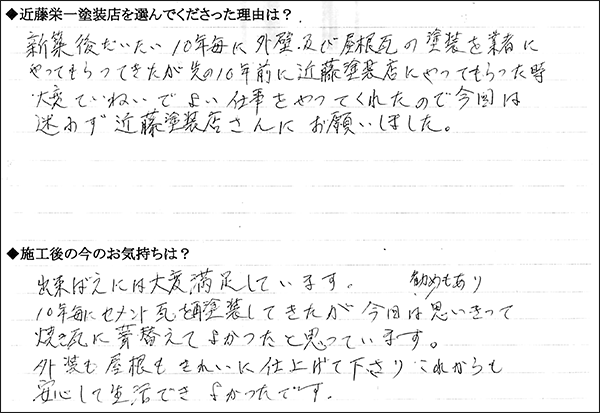 ◆近藤栄一塗装店を選んでくださった理由は？
新築後だいたい10年毎に外壁及び屋根瓦の塗装を業者に
やってもらってきたが先の10年前に近藤塗装店にやってもらった時
大変ていねいでよい仕事をやってくれたので今回は
迷わず近藤塗装店さんにお願いしました。
◆施工後の今のお気持ちは？
出来ばえには大変満足しています。
勧めもあり
10年毎にセメント瓦を再塗装してきたが今回は思いきって
焼き瓦に葺替えてよかったと思っています。
外装も屋根もきれいに仕上げて下さりこれからも
安心して生活できよかったです。